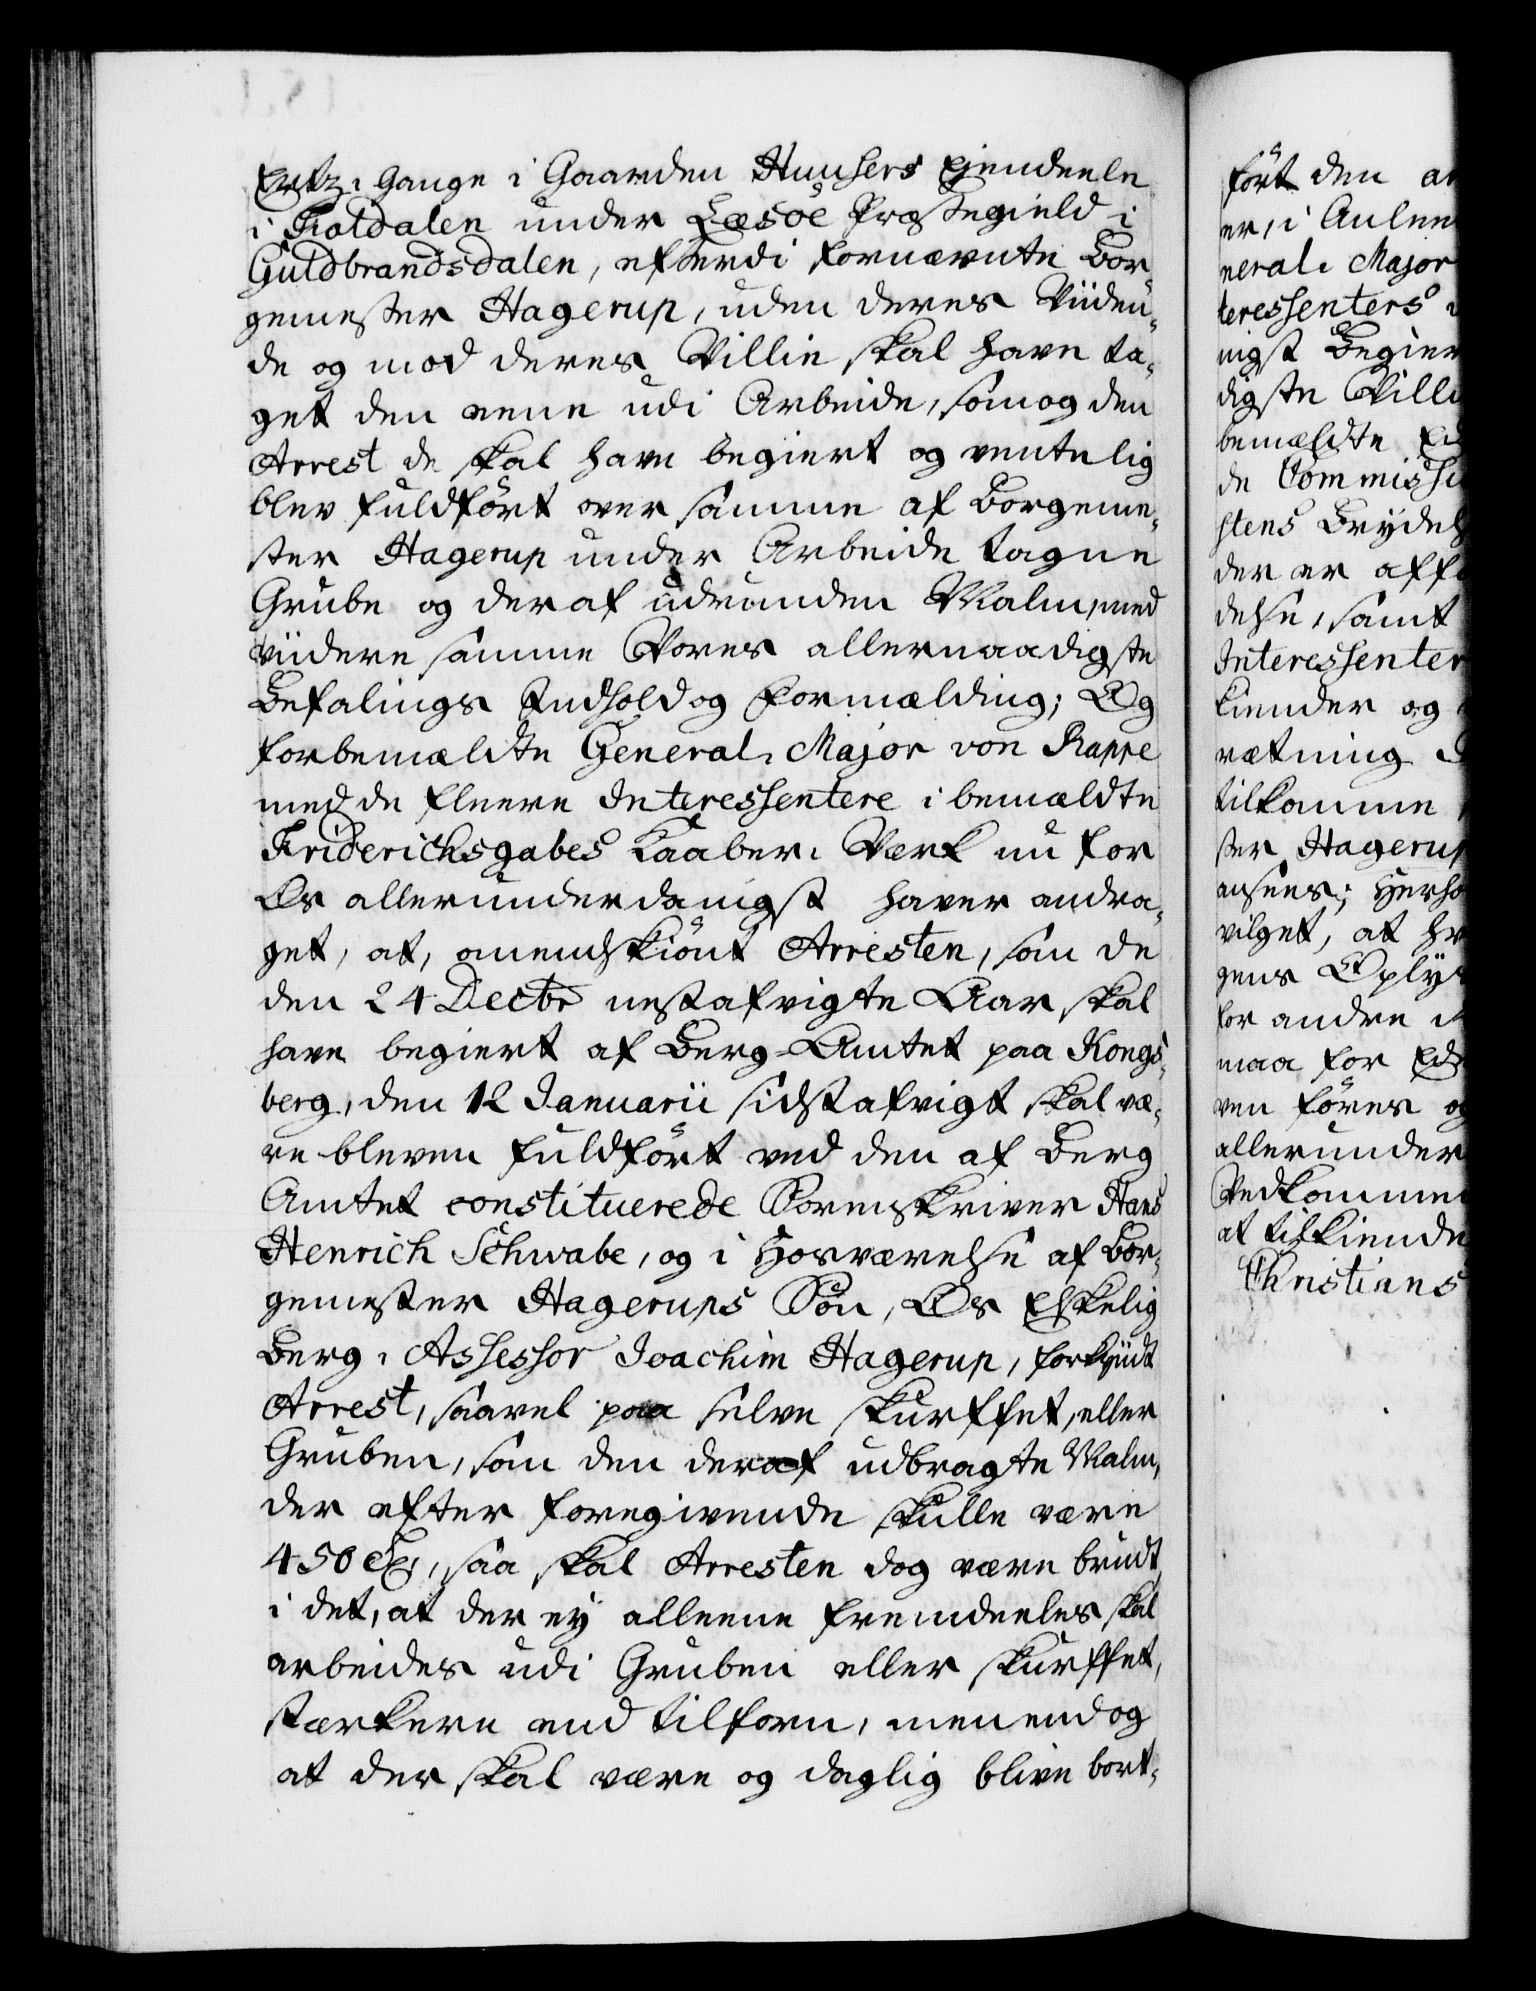 Ertz-Gange i Gaarden Hunsers Ejendeele
i Foldalen under Læsöe Præstegield i
Guldbrandsdalen, efterdi fornævnte Bor-
gemester Hagerup, uden deres Viiden-
de og mod deres Villie skal have ta-
get den eene udi Arbeide, som og den
Arrest de skal have begiert og ventelig
blev fuldfört over samme af Borgeme-
ster Hagerup under Arbeide tagne
Grube og deraf udvunden Malm, med
viidere samme Vores allernaadigste
Befalings Indhold og Formælding; Og
forbemældte General-Major von Rappe
med de fleere Interessentere i bemældte
Friderichsgabes Kaaber-Værk nu for
Os allerunderdanigst haver andra-
get, at, omendskiönt Arresten, som de
den 24 Decbr nestafvigte Aar skal
have begiert af Berg-Amtet paa Kongs-
berg, den 12 Januarii sidstafvigt skal væ-
re bleven fuldfört ved den af Berg
Amtet constituerede Sorenskriver Hans
Henrich Schwabe, og i Hosværelse af Bor-
gemester Hagerups Sön, Os Elskelig
Berg-Assessor Joachim Hagerup, forkyndt
Arrest, saavel paa selve Skurffet, eller
Gruben, som den deraf udbragte Malm,
der efter foregivende skulle være
450 , saa skal Arresten dog være brudt
i det, at der ey alleene fremdeeles skal
arbeides udi Gruben eller Skurffet,
stærkere end tilforn, men endog
at der skal være og daglig blive bort-
fört den
er, i Anlee
neral-Major
teressenters
nigst Begier
digste Villi
bemældte
de Commissi
stens Brydels
der er aff
delse, samt
Interessenter
kiender og
retning
tilkomme
ster Hagerup
ansees; Herho
vilget, at
gens Oplys
for andre
maa for
ven föres og
allerunder
Vedkommen
at tilkiende
Christians